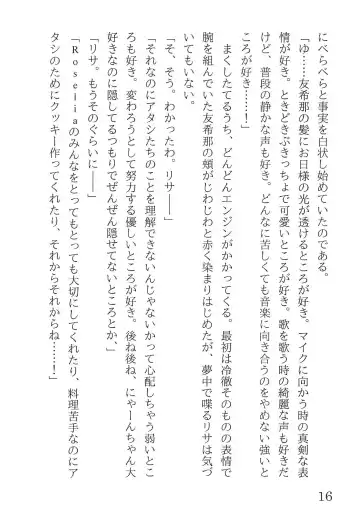 にべらべらと事実を白状し始めていたのである。
「ゆ……友希那の髪にお日様の光が透けるところが好き。マイクに向かう時の真剣な表
情が好き。ときどきぶきっちょで可愛いところが好き。歌を歌う時の綺麗な声も好きだ
けど、普段の静かな声も好き。どんなに苦しくても音楽に向き合うのをやめない強いと
ころが好き……！」
まくしたてるうち、どんどんエンジンがかかってくる。最初は冷徹そのものの表情で
腕を組んでいた友希那の頬がじわじわと赤く染まりはじめたが、夢中で喋るリサは気づ
いてもいない。
「そ、そう。わかったわ。リサ――」
「それなのにアタシたちのことを理解できないんじゃないかって心配しちゃう弱いとこ
ろも好き。変わろうとして努力する優しいところが好き。後ね後ね、にゃーんちゃん大
好きなのに隠してるつもりでぜんぜん隠せてないところとか、」
「リサ。もうそのぐらいに――」
「Roseliaのみんなをとってもとっても大切にしてくれたり、料理苦手なのにア
タシのためにクッキー作ってくれたり、それからそれからね……！」
16